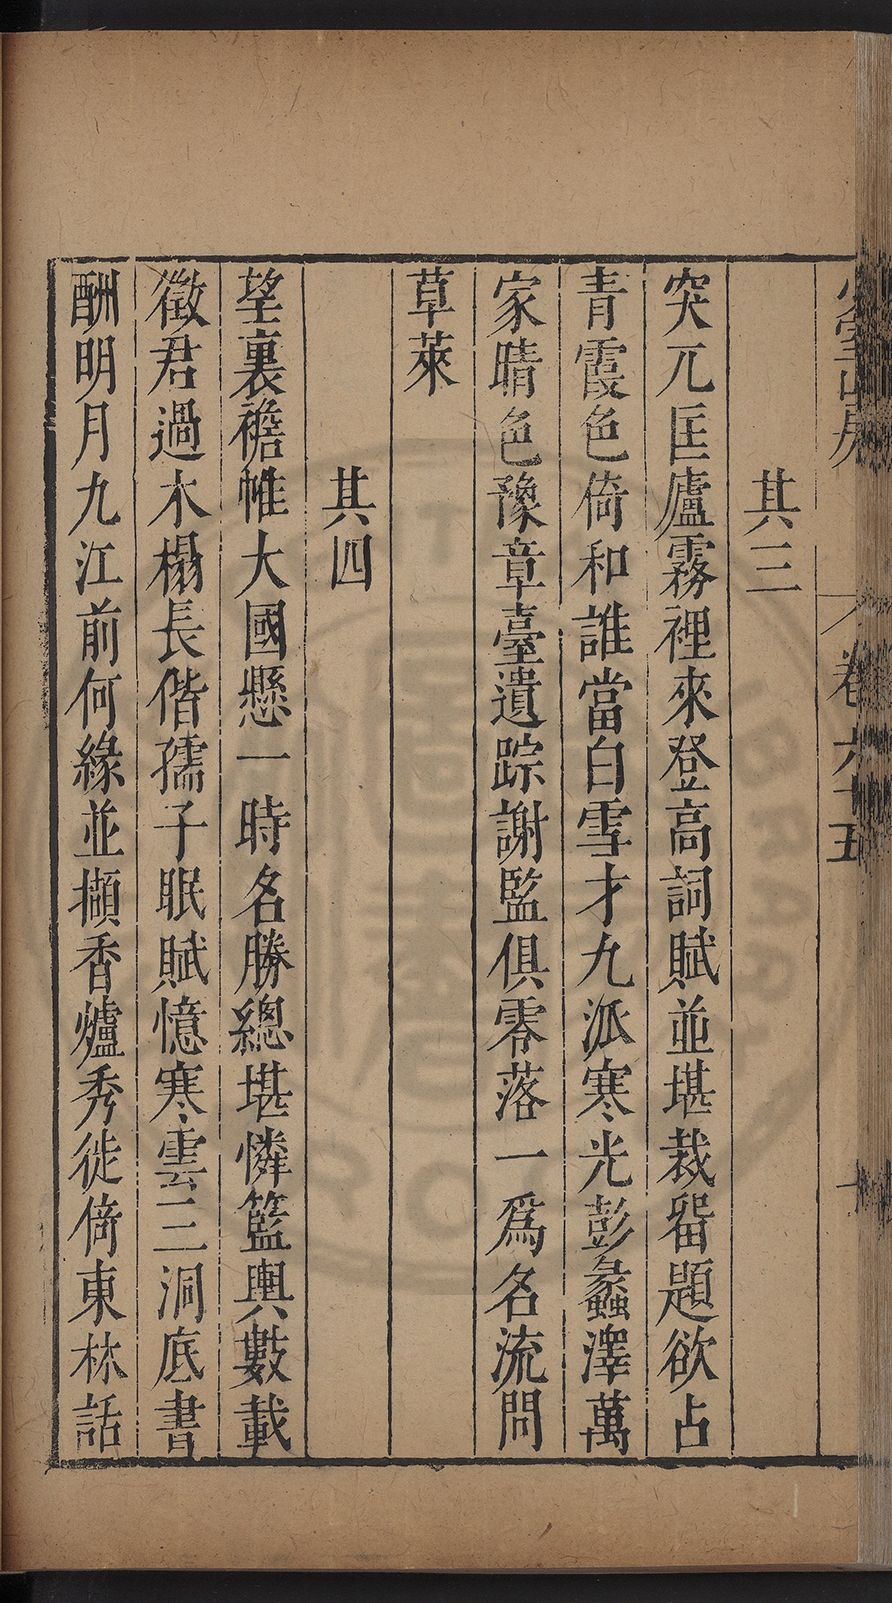 卷六十五
其三
突兀匡廬霧裡來登高詞賦並堪裁畱題欲占
青霞色倚和誰當白雪才九派寒光彭蠡澤萬
家晴色豫章臺遺踪謝監俱零落一爲名流問
草萊
其四
望裏襜帷大國懸一時名勝總堪憐籃輿數載
徵君過木榻長偕孺子眠賦憶寒雲三洞底書
酬明月九江前何緣並擷香爐秀徙倚東林話